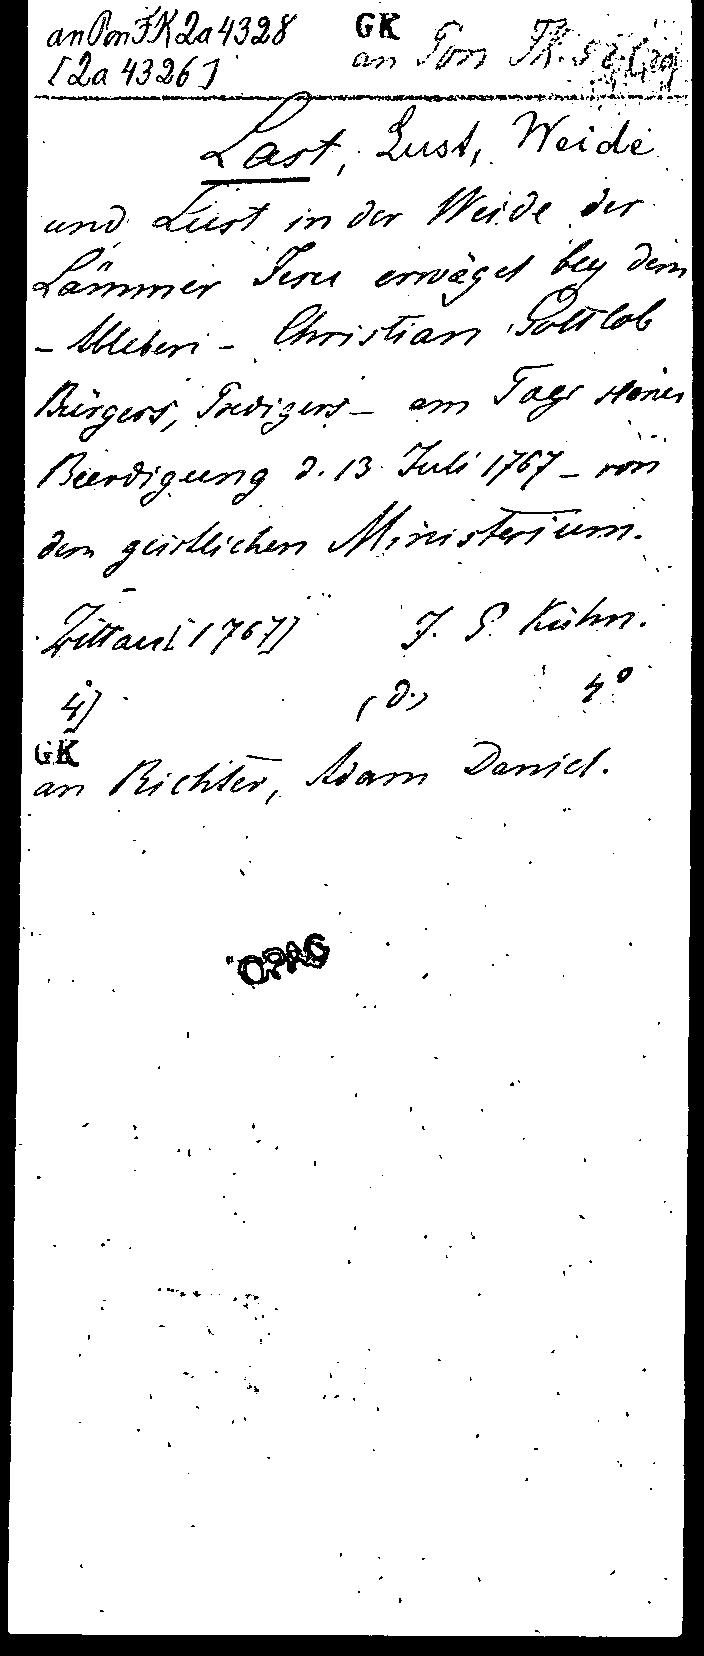 an Pon FK 2a 4328
[2a 4326]
GK
an Pon FK. 5
Last, Lust, Weide
und Lust in der Weide der
Lämmer Jesu erwäget bey dem
- Ableben - Christian Gottlob
Bürgers, Predigers - am Tage seiner
Beerdigung d. 13. Juli 1767 - von
dem geistlichen Ministerium.
Zittau [1767] J. G. Kühn.
4] (8.) 4°
GK
an Richter, Adam Daniel.